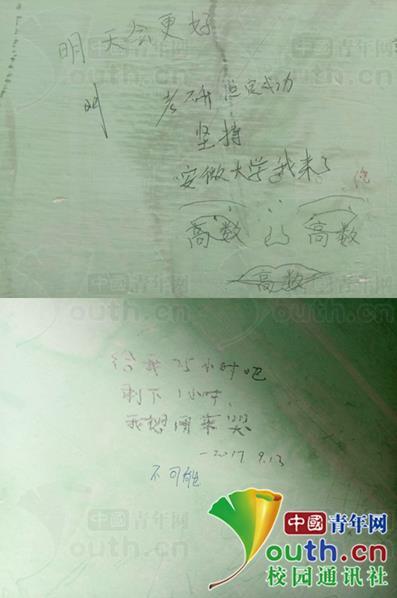 明天会更好
考研 总定成功
坚持
安徽大学我来了
高数
高数
高数
给我25小时吧
剩下1小时，
我想用来哭
-2017 9.13
不可能
中國青年网
youth.cn
校园通讯社